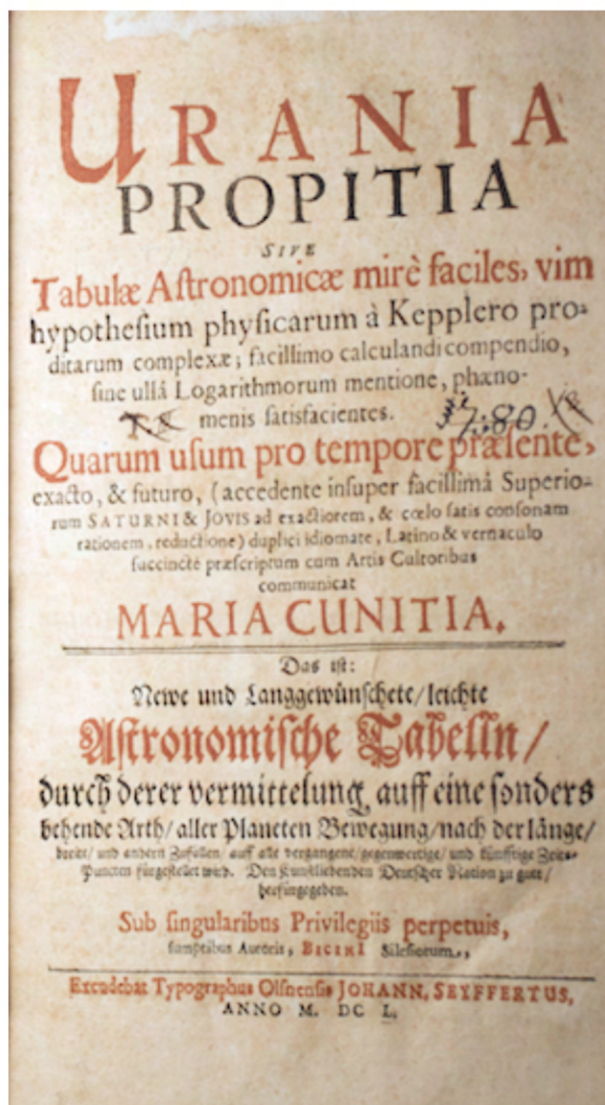 URANIA
PROPITIA
SIVE
Tabulæ Aſtronomicæ mirè faciles, vim
hypotheſium phyſicarum à Kepplero pro-
ditarum complexæ; facillimo calculandi compendio,
ſine ullâ Logarithmorum mentione, phæno-
menis ſatisfacientes.
Quarum uſum pro tempore præſente,
exacto, & futuro, (accedente inſuper facillimâ Superio-
rum SATURNI & JOVIS ad exactiorem, & cœlo ſatis conſonam
rationem, reductione) duplici idiomate, Latino & vernaculo
ſuccinctè præſcriptum cum Artis Cultoribus
communicat
MARIA CUNITIA.
Das iſt:
Newe und Langgewünſchete/ leichte
Aſtronomiſche Tabelln/
durch derer vermittelung auff eine ſonders
behende Arth/ aller Planeten Bewegung/ nach der länge/
breite/ und andern Zufällen/ auff alle vergangene/ gegenwertige/ und künfftige Zeits-
Puncten fürgeſtellet wird. Den Kunſtliebenden Deutſcher Nation zu gutt/
herfürgegeben.
Sub ſingularibus Privilegiis perpetuis,
ſumptibus Autoris, BICINI Sileſiorum.,
Excudebat Typographus Olſnenſis JOHANN. SEYFFERTUS,
ANNO M. DC L.